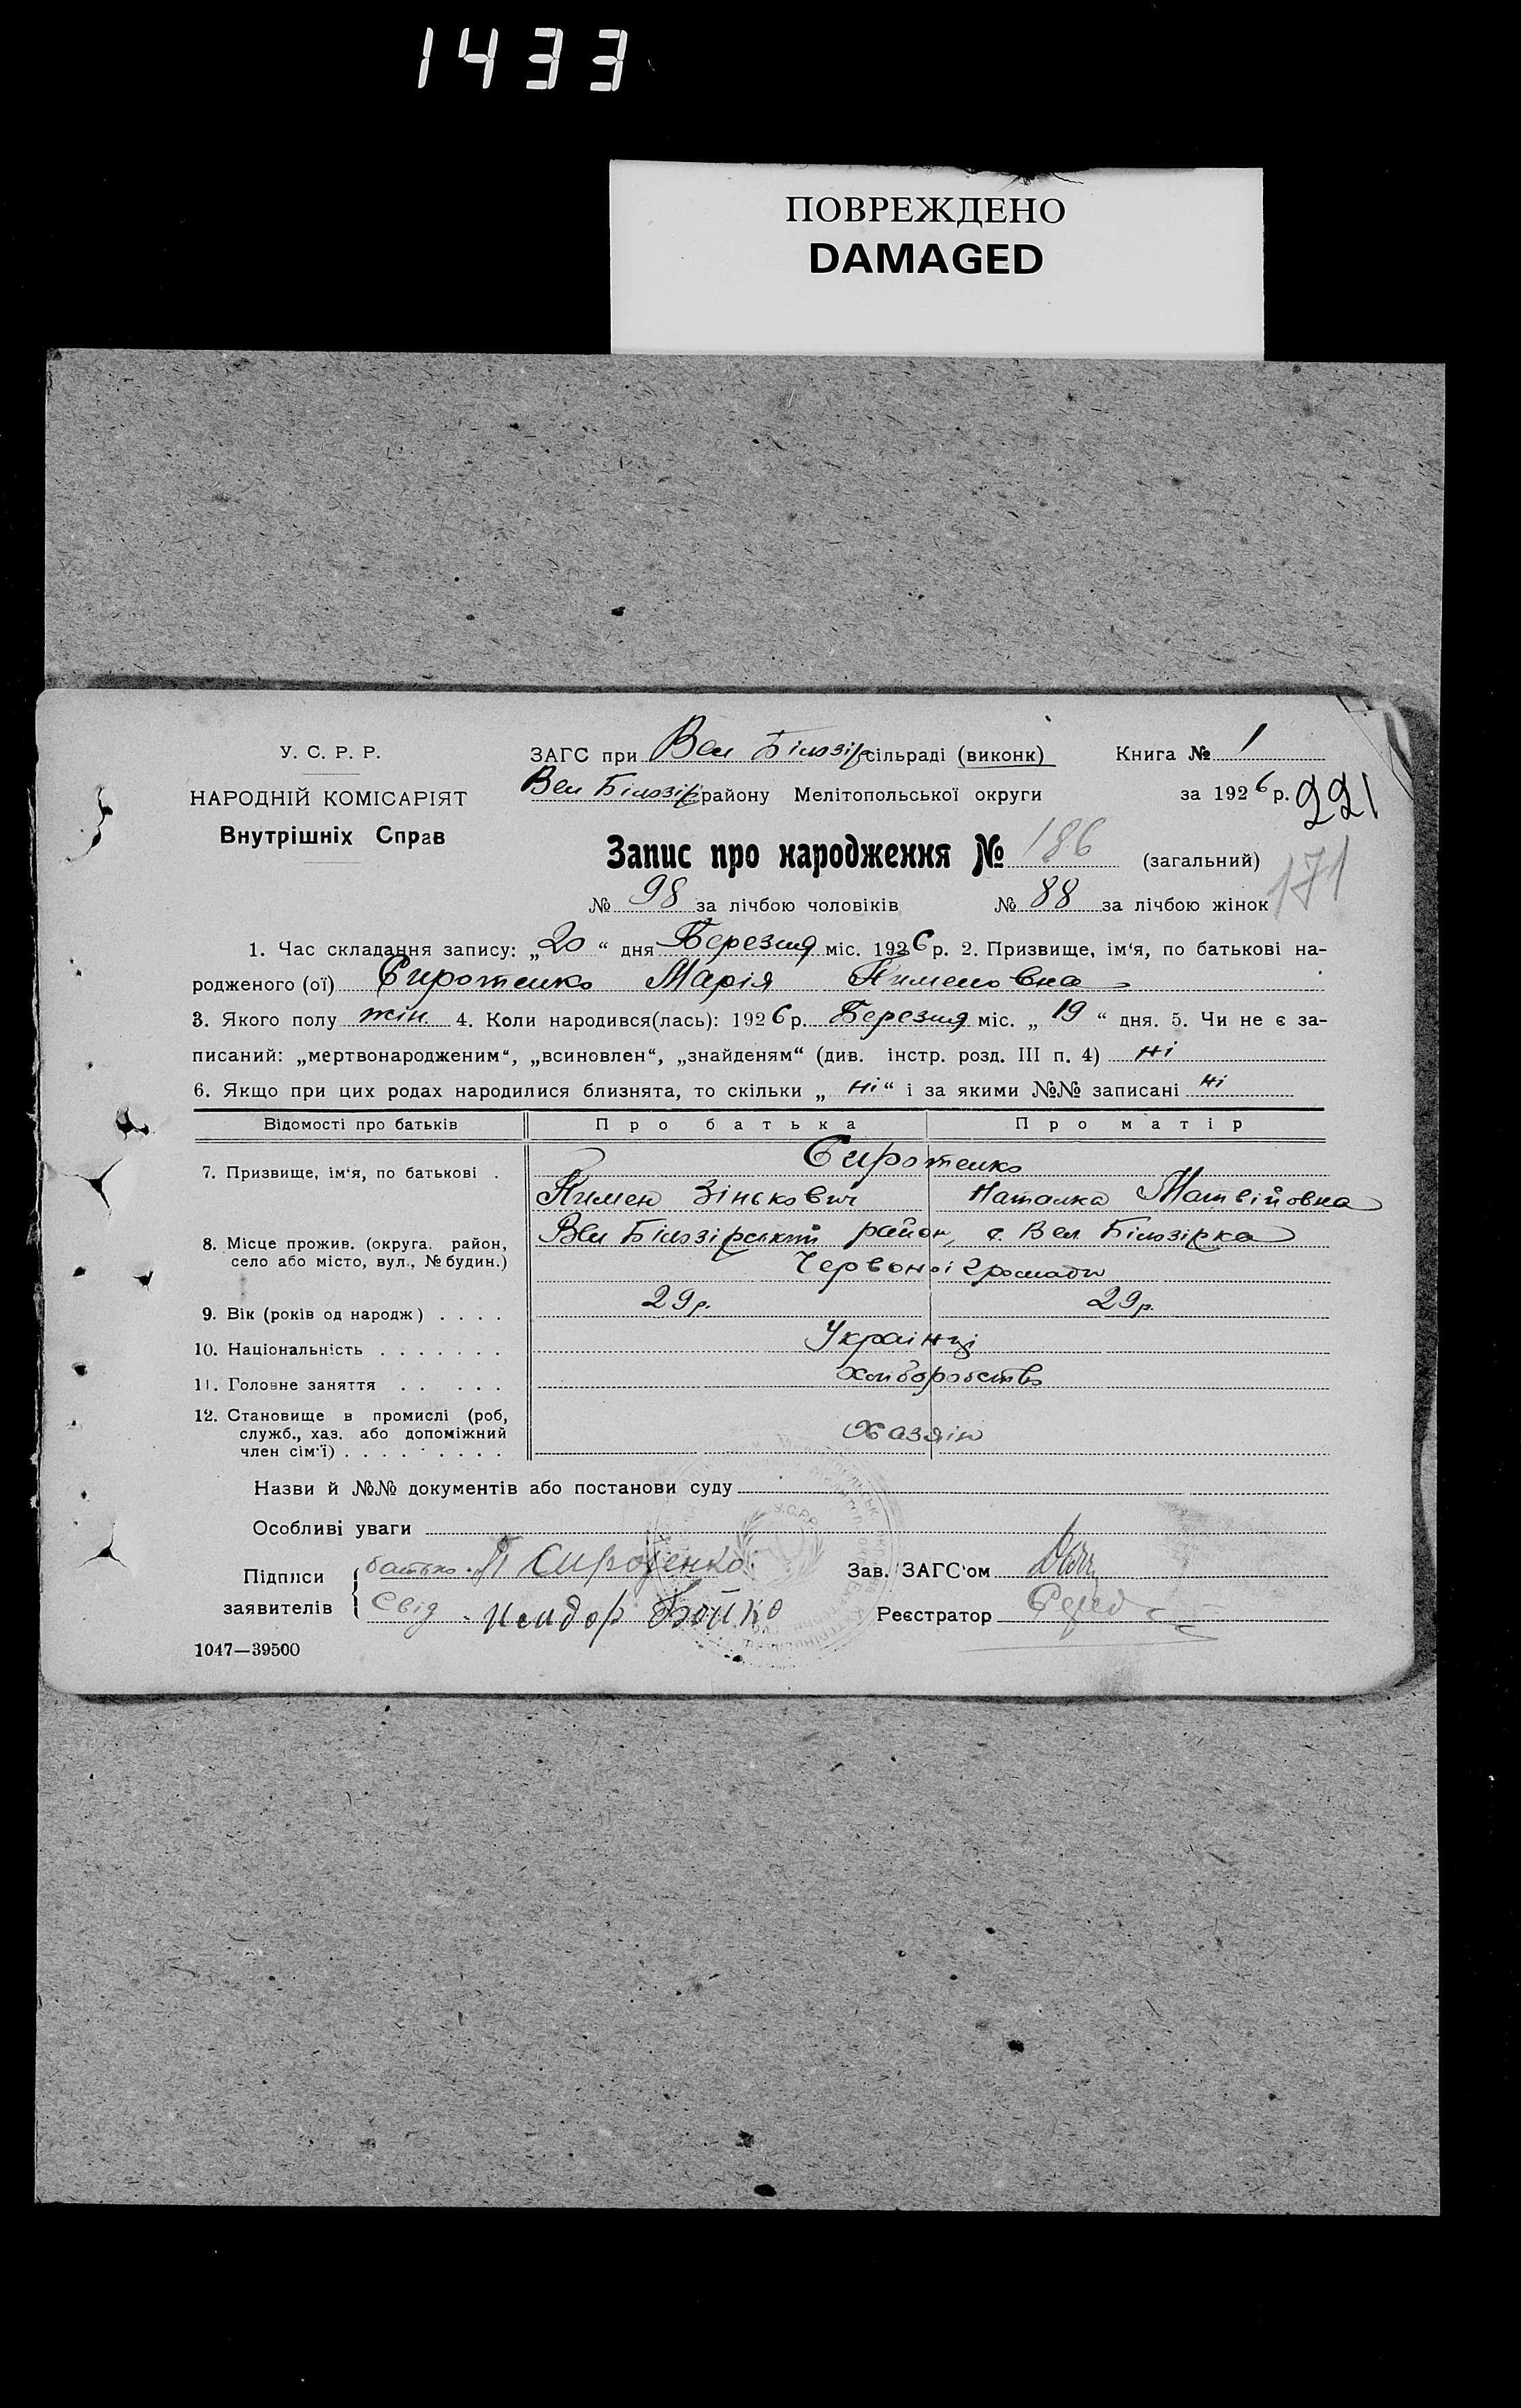 1433
ПОВРЕЖДЕНО
DAMAGED
У. С. Р. Р.
НАРОДНІЙ КОМІСАРІЯТ
Внутрішніх Справ
ЗАГС при Вел Білозір сільраді (виконк)
Книга № 1
Вел Білозір району Мелітопольської округи
за 1926 р. 221
Запис про народження № 186 (загальний) 171
№ 98 за лічбою чоловіків № 88 за лічбою жінок
1. Час складання запису: „20“ дня Березня міс. 1926 р. 2. Призвище, ім‘я, по батькові на-
родженого (ої) Сиротенко Марія Пименовна
3. Якого полу жін. 4. Коли народився(лась): 1926 р. Березня міс. „19“ дня. 5. Чи не є за-
писаний: „мертвонародженим“, „всиновлен“, „знайденям“ (див. інстр. розд. III п. 4) ні
6. Якщо при цих родах народилися близнята, то скільки „ні“ і за якими №№ записані ні
Відомості про батьків Про батька Про матір
7. Призвище, ім‘я, по батькові . Сиротенко
Пимен Зінькович Наталка Матвійовна
8. Місце прожив. (округа. район,
село або місто, вул., № будин.)
Вел Білозірський район, с. Вел Білозірка
Червоної Громади
9. Вік (років од народж) . . . . 29 р. 29 р.
10. Національність . . . . . . . Українці
11. Головне заняття . . . . . Хліборобство
12. Становище в промислі (роб,
служб., хаз. або допоміжний
член сім‘ї) . . . . . . . . . Хазяін
Назви й №№ документів або постанови суду
Особливі уваги
У.С.Р.Р.
Підписи
заявителів
батько. П Сиротенко
Свід. Бойко
Зав. ЗАГС‘ом
Реєстратор
1047—39500